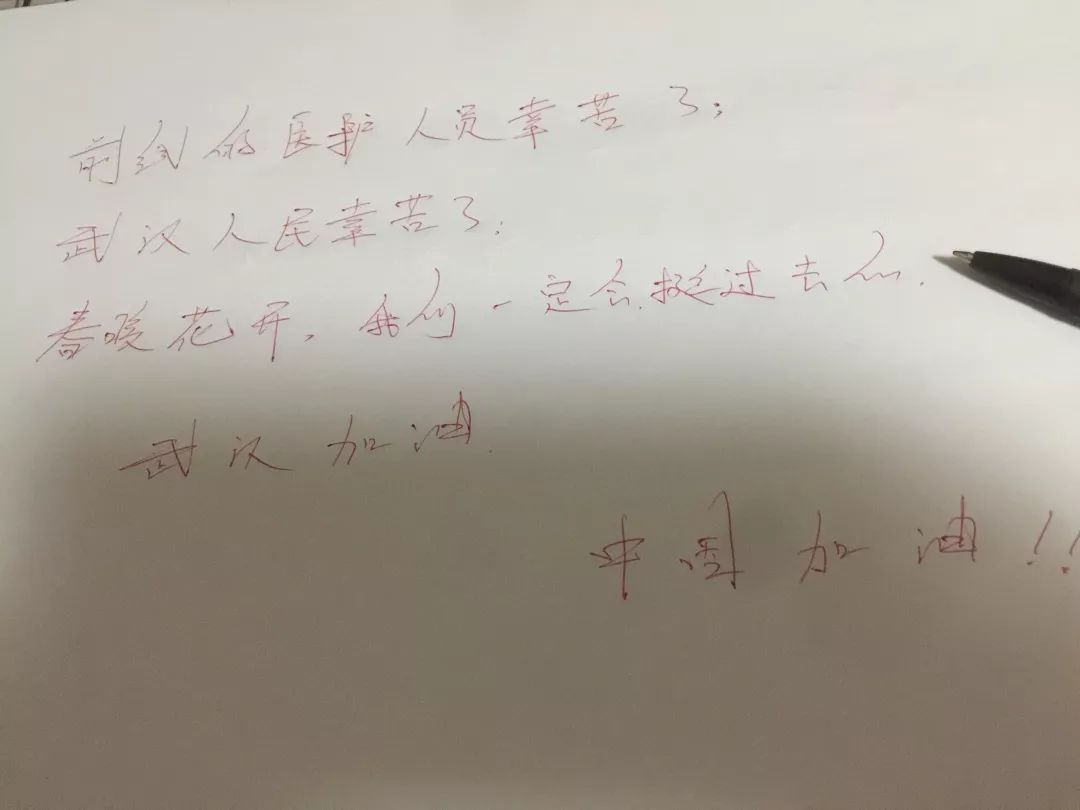 前线的医护人员辛苦了;
武汉人民辛苦了;
春暖花开,我们一定会挺过去的.
武汉加油.
中国加油!!